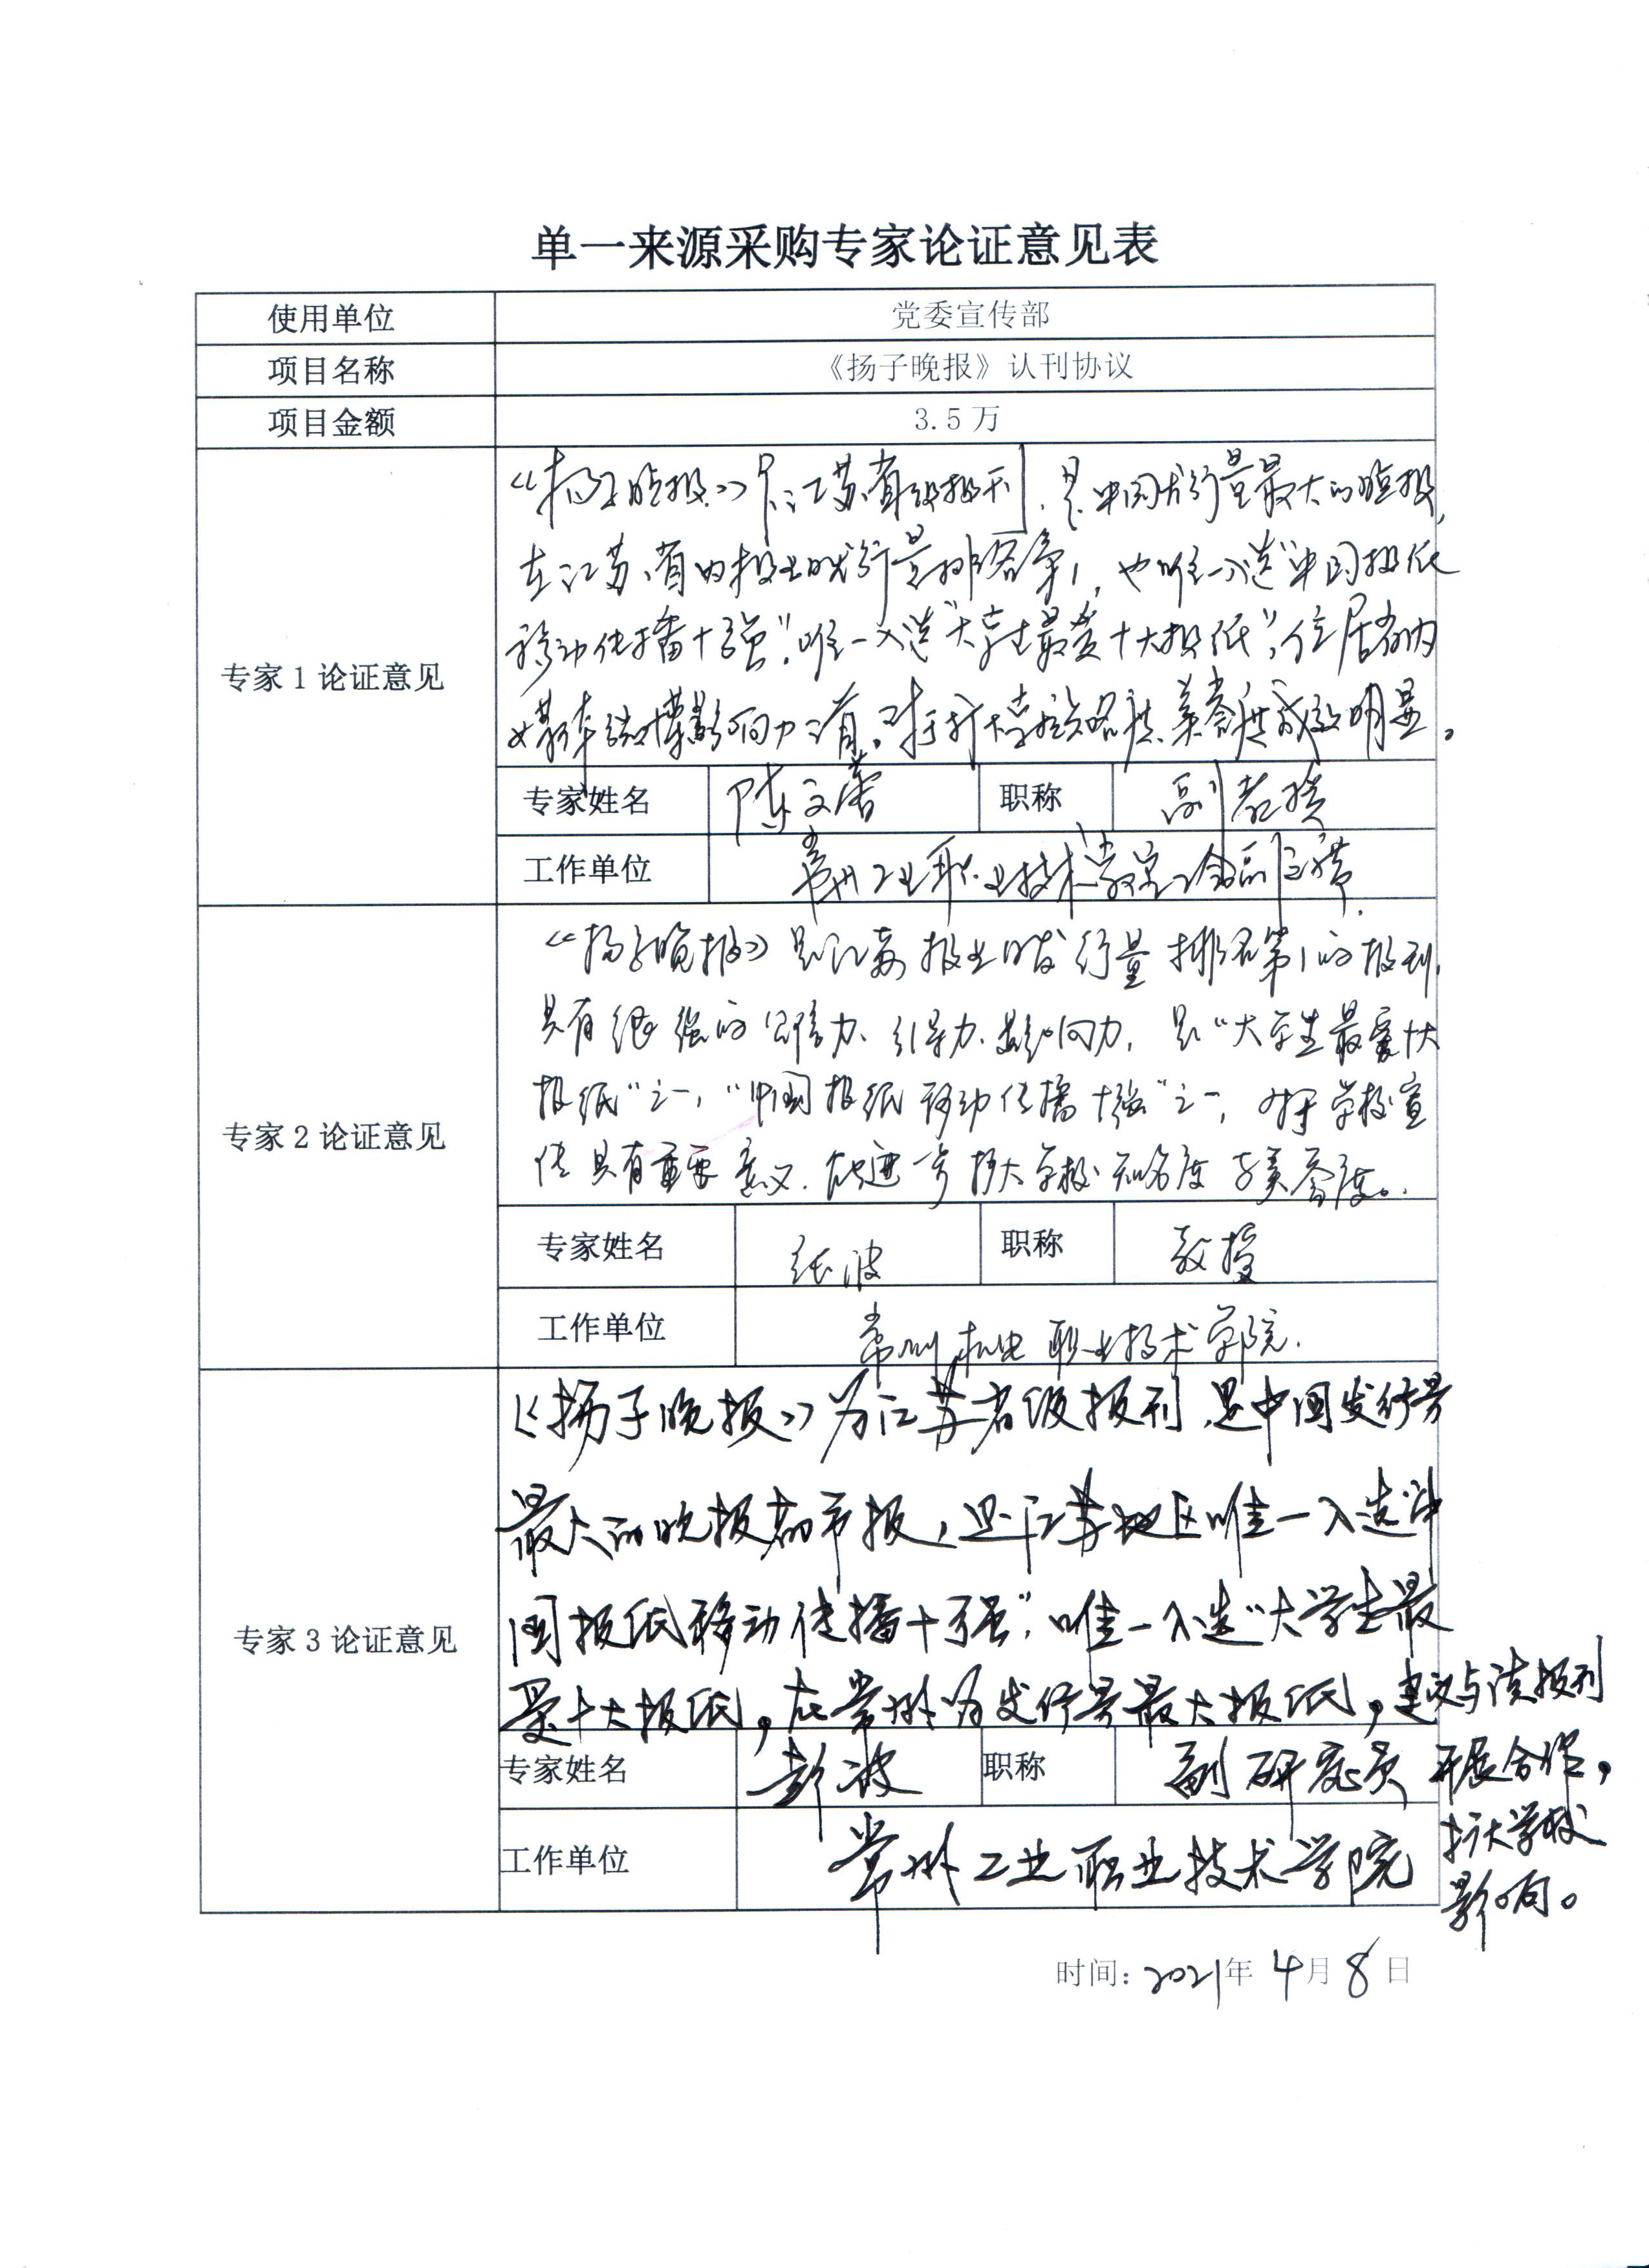 单一来源采购专家论证意见表
使用单位 党委宣传部
项目名称 《扬子晚报》认刊协议
项目金额 3.5万
专家1论证意见
《扬子晚报》是江苏省级报刊,是中国发行量最大的晚报,
在江苏省内报业日发行量排名第1,也唯一入选"中国报纸
移动传播十强",唯一入选"大学生最爱十大报纸",位居省内
媒体微博影响力首,对于扩大学校知名度、美誉度成效明显。
专家姓名 陈文 职称 副教授
工作单位 常州工业职业技术学院
专家2论证意见
《扬子晚报》是江苏报业日发行量排名第1的报刊,
具有很强的公信力、引导力、影响力,是"大学生最爱十大
报纸"之一,"中国报纸移动传播十强"之一,对于学校宣
传具有重要意义.能进一步扩大学校知名度与美誉度。
专家姓名 张波 职称 教授
工作单位 常州机电职业技术学院.
专家3论证意见
《扬子晚报》为江苏省级报刊,是中国发行量
最大的晚报都市报,是江苏地区唯一入选"中
国报纸移动传播十强",唯一入选"大学生最
爱十大报纸,在常州为发行量最大报纸,建议与该报刊
开展合作,
扩大学校
影响。
专家姓名 彭波 职称 副研究员
工作单位 常州工业职业技术学院
时间:2021年4月8日